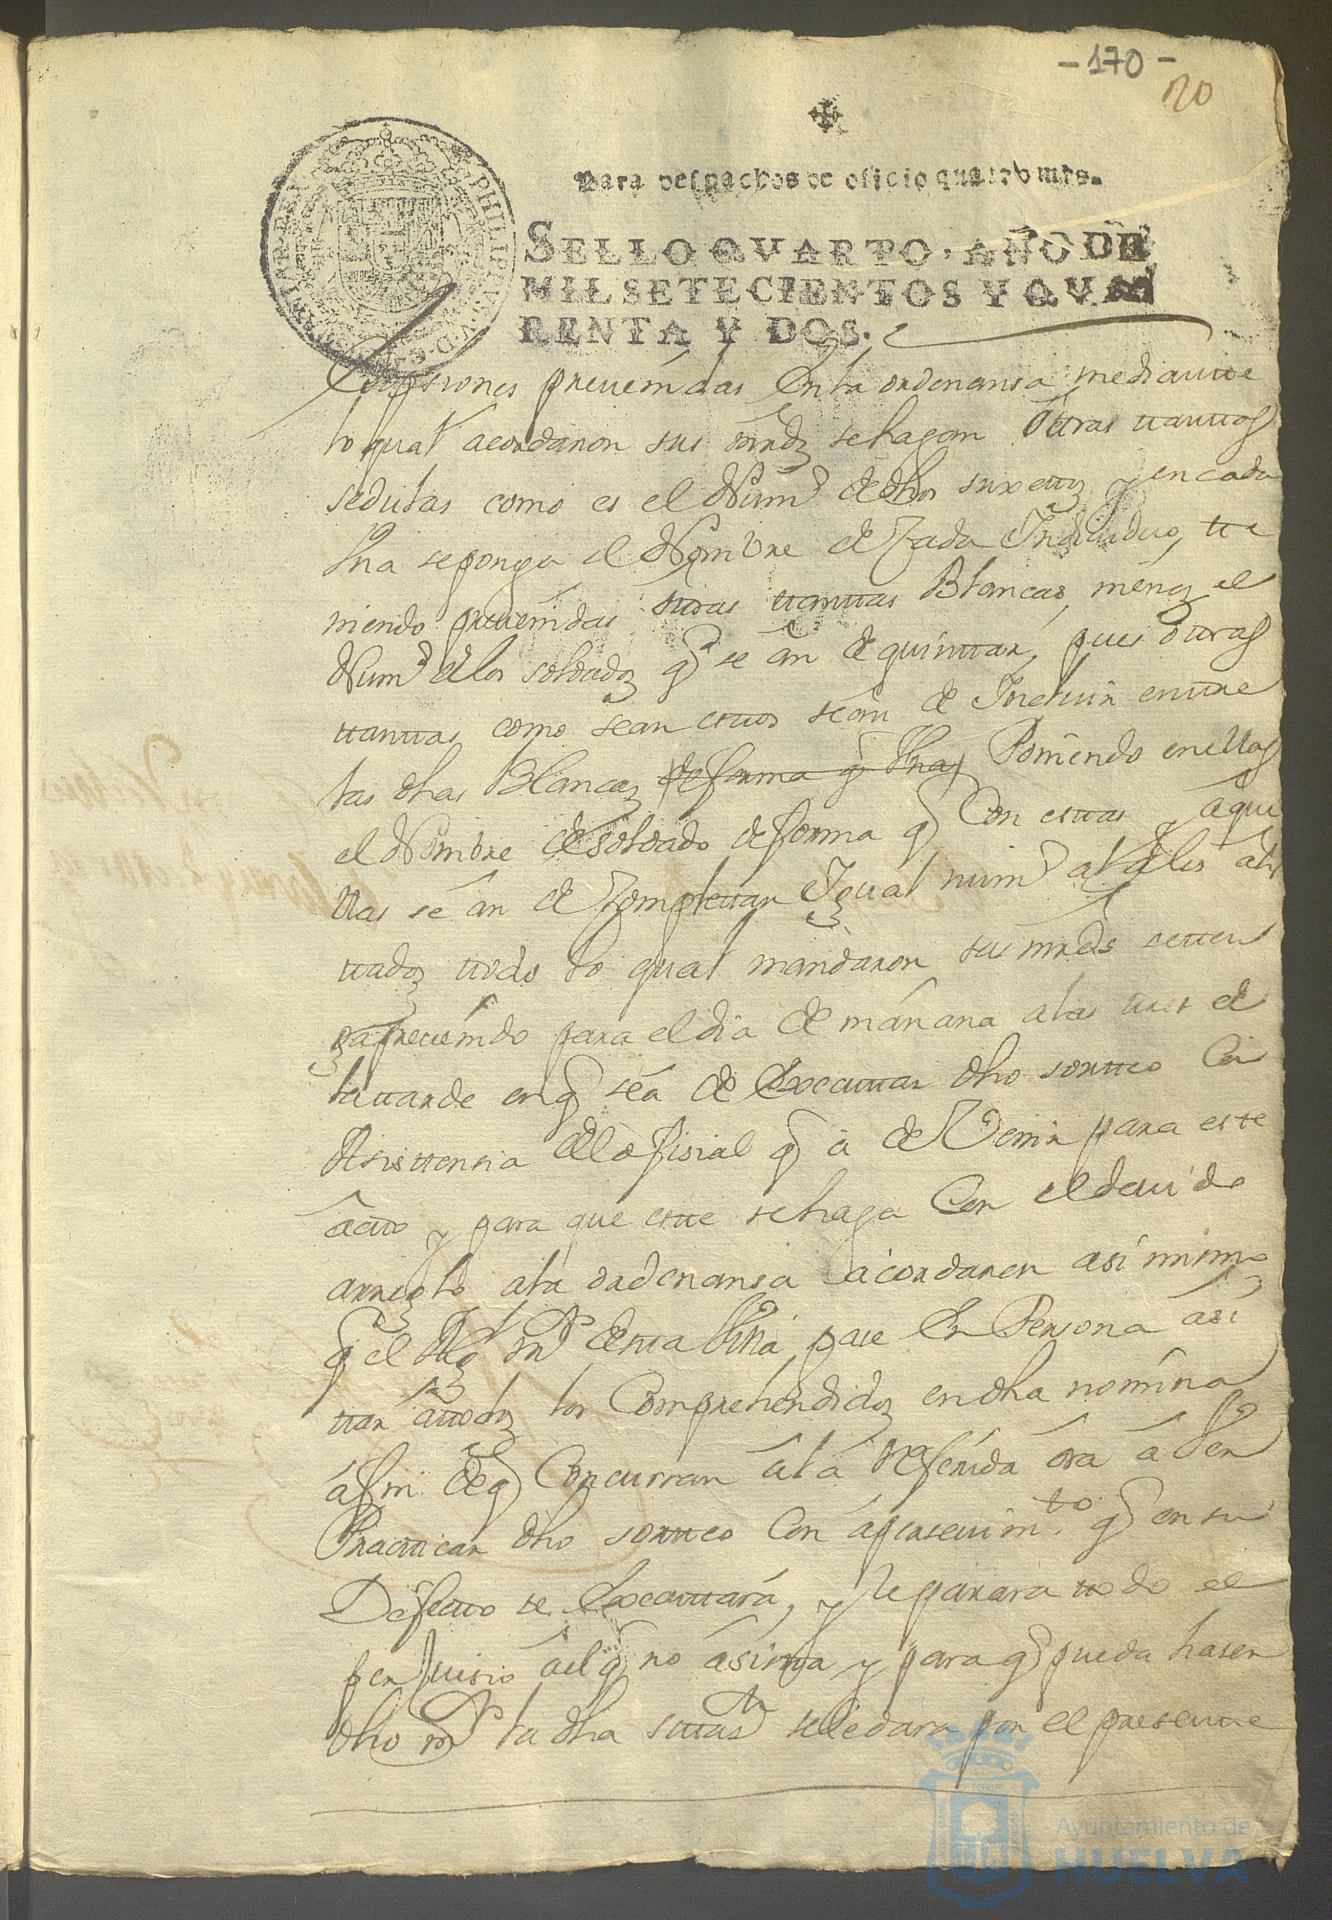 - 170 -
20
Para despachos de oficio quatro mrs.
SELLO QVARTO, AÑO DE
MIL SETECIENTOS Y QVA
RENTA Y DOS.
prevenidas En la ordenansa, mediante
lo qual acordaron sus mrds se hagan Otras tantas
sedulas como es el Num.º de dhos suxetos y en cada
Vna se ponga el Nombre de Cada Indiuiduo, te
niendo preuenidas otras tantas Blancas, menos el
Num.º de los soldados q se an de quintar, pues Otras
tantas como sean estos sean de Incluir entre
las dhas Blancas de forma q Vnas Poniendo en ellas
el Nombre de soldado de forma q Con estas y aque
llas se an de Completar Igual num.º al de los alis
tados todo lo qual mandaron sus mrds se
para el dia de mañana a las tres de
la tarde en q se a de Executar dho sorteo Con
Asistensia del ofisial q a de Venir para este
acto y para que este se haga Con el deuido
arreglo a la ordenansa acordaron asi mismo
q el Alg.l m.r de esta Villa pase En Persona a si
tar a todos los Comprehendidos en dha nomina
a fin de q Concurran a la Referida ora a Ver
Practicar dho sorteo Con apersevim.to q en su
Defecto se Executará, y le parara todo el
perjuisio al q no asista y para q pueda haser
dho m.r la dha sitas.n se le dara por el presente
Ayuntamiento de
HUELVA